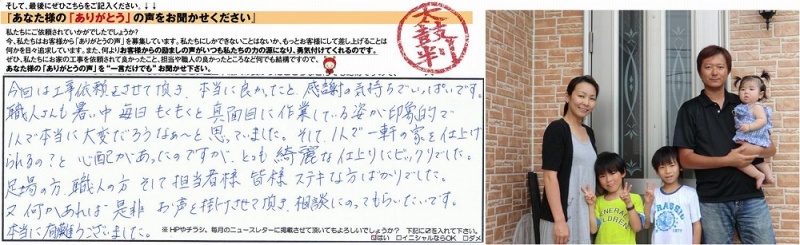 そして、最後にぜひこちらをご記入ください。↓↓
『あなた様の「ありがとう」の声をお聞かせください』
私たちにご依頼されていかがでしたでしょうか?
今、私たちはお客様から「ありがとうの声」を募集しています。私たちにしかできないことはないか、もっとお客様にして差し上げることは
何かを日々追求しています。また、何よりお客様からの励ましの声がいつも私たちの力の源になり、勇気付けてくれるのです。
ぜひ、私たちにお家の工事を依頼されて良かったこと、担当や職人の良かったところなど何でも結構ですので、
あなた様の「ありがとうの声」を“一言だけでも”お聞かせ下さい。
太鼓判
今回は工事依頼をさせて頂き、本当に良かったこと、感謝の気持ちでいっぱいです。
職人さんも暑い中毎日もくもくと真面目に作業している姿が印象的で
1人で本当に大変だろうなぁ〜と思っていました。そして、1人で一軒の家を仕上げ
られるの?と心配があったのですが、とっても綺麗な仕上りにビックリでした。
足場の方、職人の方 そして担当者様 皆様 ステキな方ばかりでした。
又 何かあれば 是非 お声を掛けさせて頂き、相談にのってもらいたいです。
本当に有難うございました。
※HPやチラシ、毎月のニュースレターに掲載させて頂いてもよろしいでしょうか? 下記に☑を入れて下さい。
はい □イニシャルならOK □ダメ
GENERAL
CHILDREN